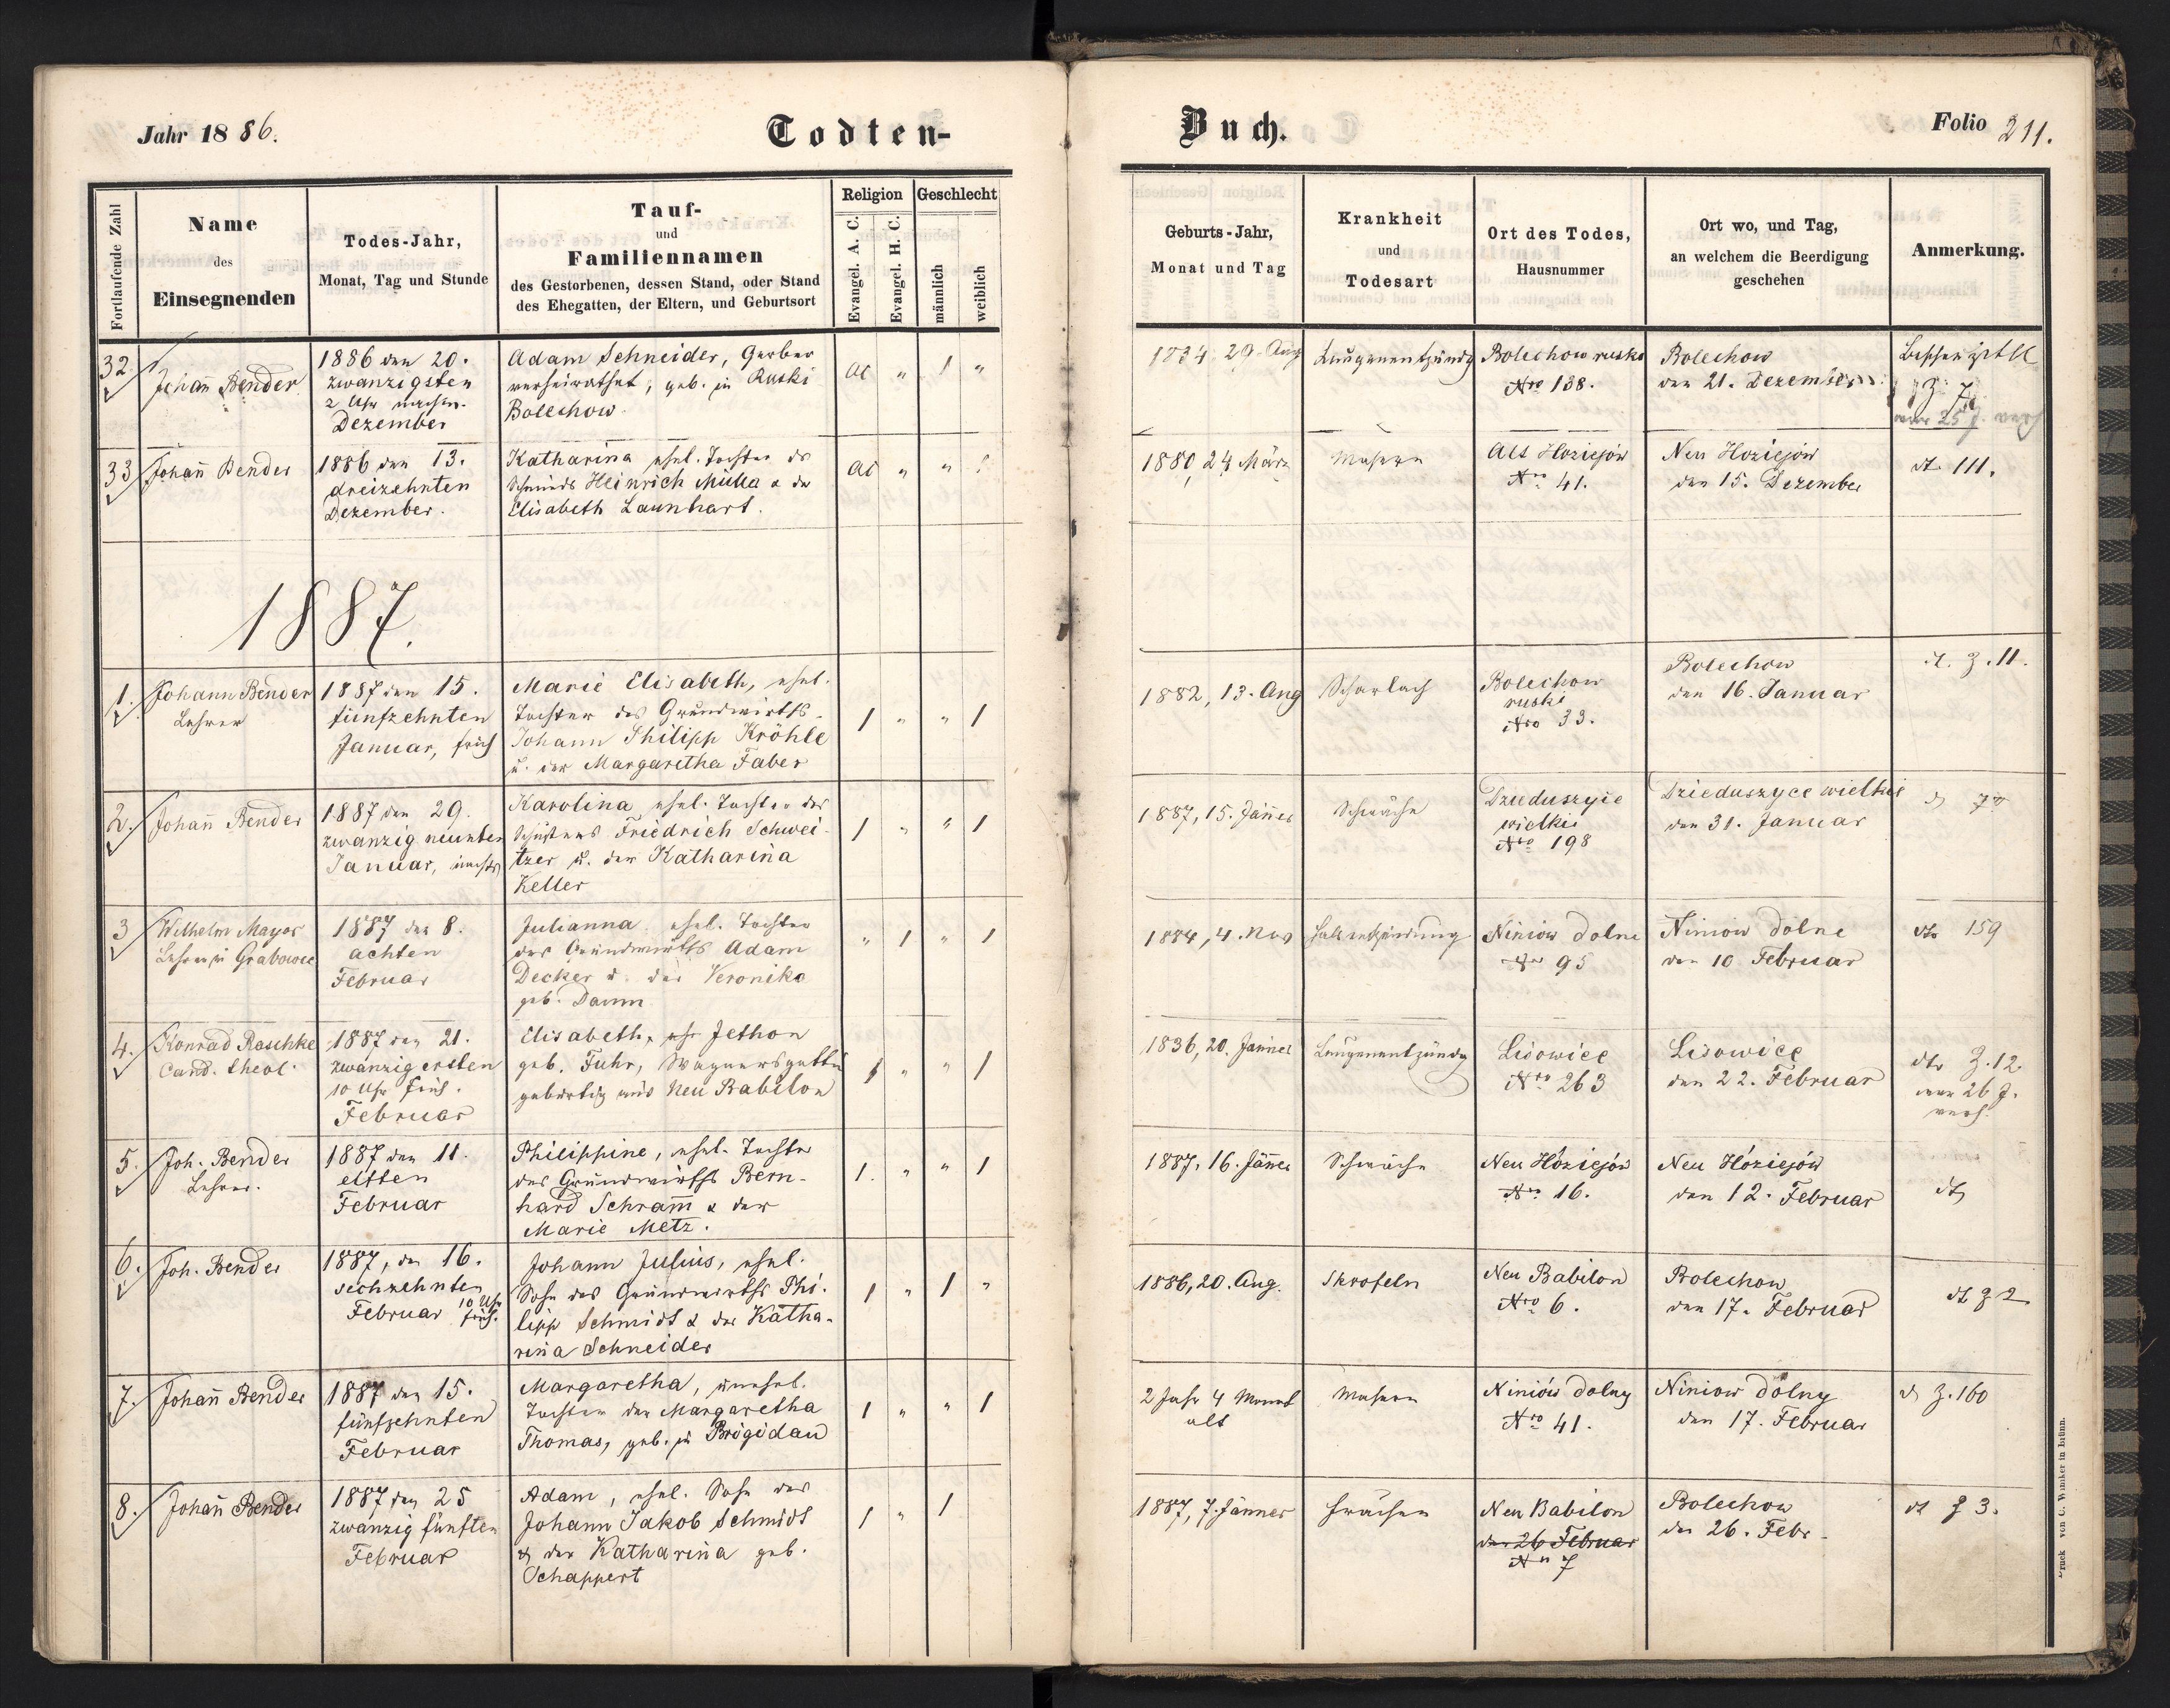 Jahr 1886.
Todten-
Buch.
Folio 211.
Fortlaufende Zahl
Name
des
Einsegnenden
Todes-Jahr,
Monat, Tag und Stunde
Tauf-
und
Familiennamen
des Gestorbenen, dessen Stand, oder Stand
des Ehegatten, der Eltern, und Geburtsort
Religion
Evangel. A. C.
Evangel. H. C.
Geschlecht
männlich
weiblich
Geburts-Jahr,
Monat und Tag
Krankheit
und
Todesart
Ort des Todes,
Hausnummer
Ort wo, und Tag,
an welchem die Beerdigung
geschehen
Anmerkung.
32.
Johann̄ Bender
1886 den 20.
zwanzigsten
2 Uhr nachm.
Dezember
Adam Schneider, Gerber
verheirathet, geb. in Ruski
Bolechow.
AC " 1 "
1834. 29. Aug
Lungenentzündg
Bolechow ruski
Nro 138.
Bolechow
den 21. Dezember
Z. 7
war 25 J. verh
33
Johann̄ Bender
1886 den 13.
dreizehnten
Dezember.
Katharina ehel. Tochter des
Schmieds Heinrich Müller & der
Elisabeth Launhart.
AC " " 1
1880, 24 März
Masern
Alt Hoziejów
Nro 41.
Neu Hoziejów
den 15. Dezember
dt. 111.
1887.
1.
Johann Bender
Lehrer
1887 den 15.
fünfzehnten
Januar, früh
Marie Elisabeth, ehel.
Tochter des Grundwirths
Johann Philipp Kröhle
u. der Margaretha Faber
1 " " 1
1882, 13. Aug
Scharlach
Bolechow
ruski
Nro 33.
Bolechow
den 16. Januar
dt. Z. 11.
2.
Johann̄ Bender
1887 den 29.
zwanzig neunten
Januar, nachts
Karolina ehel. Tochter des
Schusters Friedrich Schwei-
tzer u. der Katharina
Keller
1 " " 1
1887, 15. Jänner
Schwäche
Dzieduszyce
wielkie
Nro 198
Dzieduszyce wielkie
den 31. Januar
3
Wilhelm Mayer
Lehrer in Grabowce
1887 den 8.
achten
Februar
Julianna ehel. Tochter
des Grundwirths Adam
Decker u. der Veronika
geb. Damm
" 1 " 1
1884, 4. Nov
Halsentzündung
Niniow dolne
Nro 95
Niniow dolne
den 10 Februar
dto 159
4.
Konrad Raschke
Cand. theol.
1887 den 21.
zwanzig ersten
10 Uhr früh.
Februar
Elisabeth, ehe Jethon
geb. Fuhr, Wagnersgattin
gebürtig aus Neu Babilon
1 " " 1
1836, 20. Jänner
Lungenentzündg
Lisowice
Nro 263
Lisowice
den 22. Februar
dto Z. 12
war 26 J.
verh.
5.
Joh. Bender
Lehrer.
1887 den 11.
elften
Februar
Philippine, ehel. Tochter
des Grundwirths Bern-
hard Schram̄ & der
Marie Metz.
1. " " 1
1887, 16. Jänner
Schwäche
Neu Hóziejów
Nro 16.
Neu Hóziejów
den 12. Februar
dt
6.
Joh. Bender
1887, den 16.
sechzehnten
Februar 10 Uhr
früh.
Johann Julius, ehel.
Sohn des Grundwirths Phi-
lipp Schmidt & der Katha-
rina Schneider
1 " 1 "
1886, 20. Aug.
Skrofeln
Neu Babilon
Nro 6.
Bolechow
den 17. Februar
dt Z 2
7.
Johann̄ Bender
1887 den 15.
fünfzehnten
Februar
Margaretha, unehel.
Tochter der Margaretha
Thomas, geb. in Brigidau
1 " " 1
2 Jahr 4 Monat
alt
Masern
Niniów dolny
Nro 41.
Niniow dolny
den 17. Februar
dt Z. 160
8.
Johann̄ Bender
1887 den 25
zwanzig fünften
Februar
Adam, ehel. Sohn des
Johann Jakob Schmidt
& der Katharina geb.
Schappert
1 " 1
1887, 7. Jänner
Neu Babilon
den 26 Februar
Nro 7
Bolechow
den 26. Febr.
dt Z 3.
Druck von C. Winiker in Brünn.